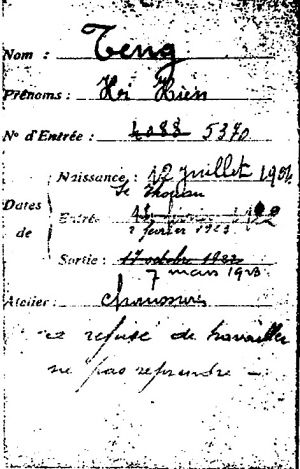 Nom : Teng
Prénoms : Hi Hien
N° d'Entrée : 4088 5370
Naissance : 12 juillet 1904
Dates
de
Entrée
2 fevrier 1923
Sortie : 17 octobre 1922
7 mars 1923
Atelier : Chaussures
refuse de travailler
ne pas reprendre –